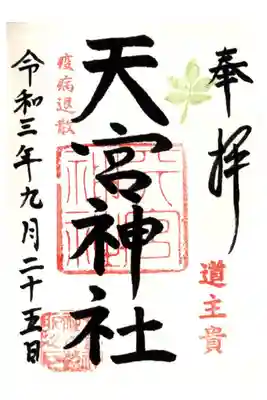 奉拝
道主貴
天宮神社
疫病退散
令和三年九月二十五日